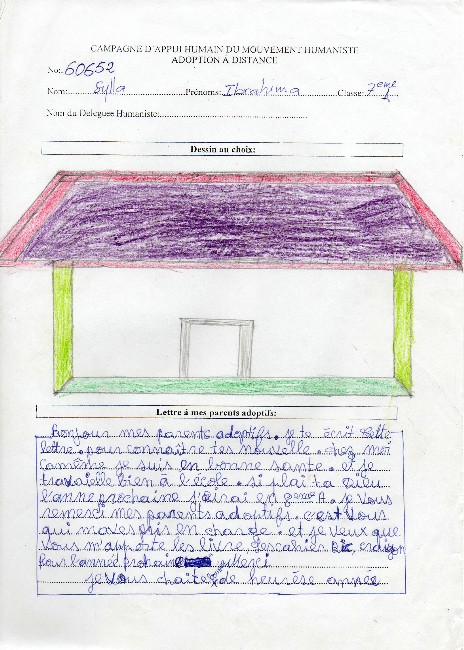 CAMPAGNE D'APPUI HUMAIN DU MOUVEMENT HUMANISTE
ADOPTION A DISTANCE
No: 60652
Nom: Sylla Prénoms: Ibrahima Classe: 7eme
Nom du Deleguee Humaniste:
Dessin au choix:
Lettre à mes parents adoptifs:
Bonjour mes parents adoptifs. je te écrit Cette
lettre. pour connaitre tes nouvelle. chez moi
même je suis en bonne sante. et je
travaielle bien à l'école. si plai ta Dieu
l'anne prochaine j'eirai en 8eme A. je Vous
remerci mes parents adoutifs. c'est Vous
qui mavespris en charde. et je Veux que
Vous m'apporte les livre descahier Bic, craiyon
pour l'année prochaine Merci
je Vous chaite de heurèse année